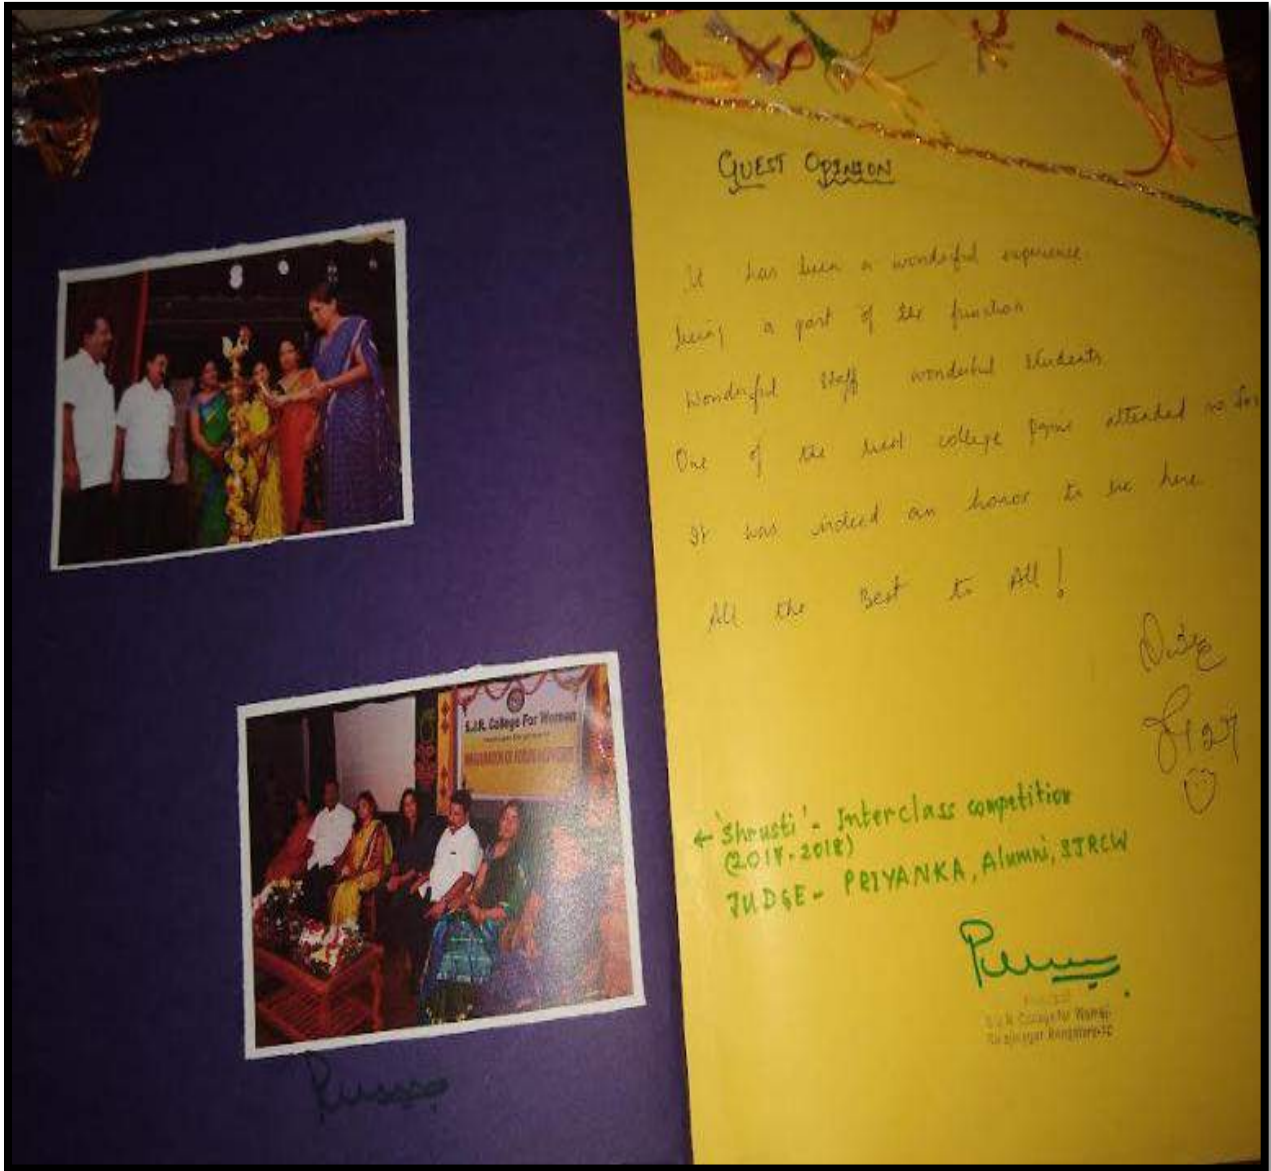 S.J.R. College For Women
GUEST OPINION
It has been a wonderful experience
being a part of the function
Wonderful Staff wonderful Students
One of the best college attended so far
It was indeed an honor to be here
All the Best to All!
← 'Shrusti' - Interclass competition
(2017-2018)
JUDGE - PRIYANKA, Alumni, SJRCW
Principal
S.J.R. College for Women
Rajajinagar Bangalore-10